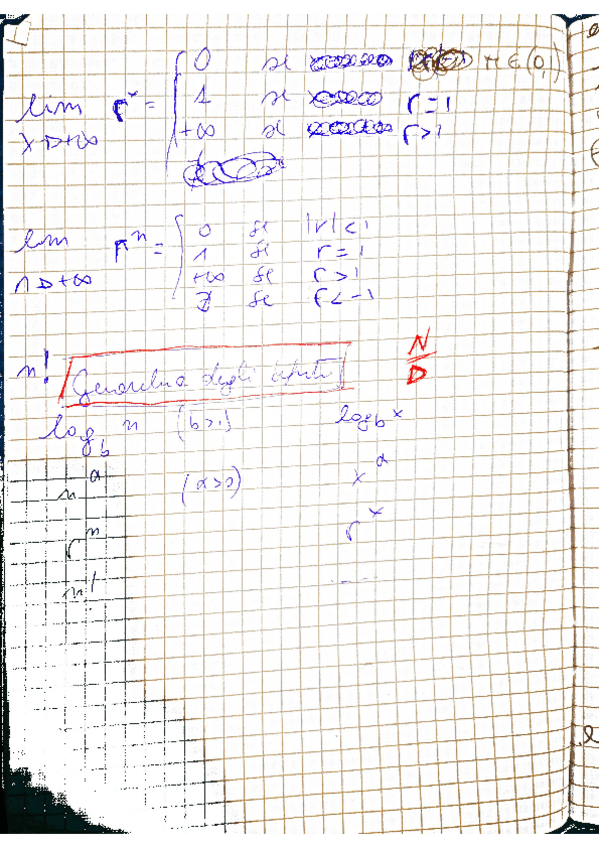 0 se r ∈ (0,1)
lim r^x = 1 se r = 1
x → +∞ +∞ se r > 1
lim r^n = 0 se |r| < 1
1 se r = 1
n → +∞ +∞ se r > 1
∄ se r < -1
n! Gerarchia degli infiniti N/D
log_b n (b>1) log_b x
n^α (α>0) x^α
r^n r^x
n! ....